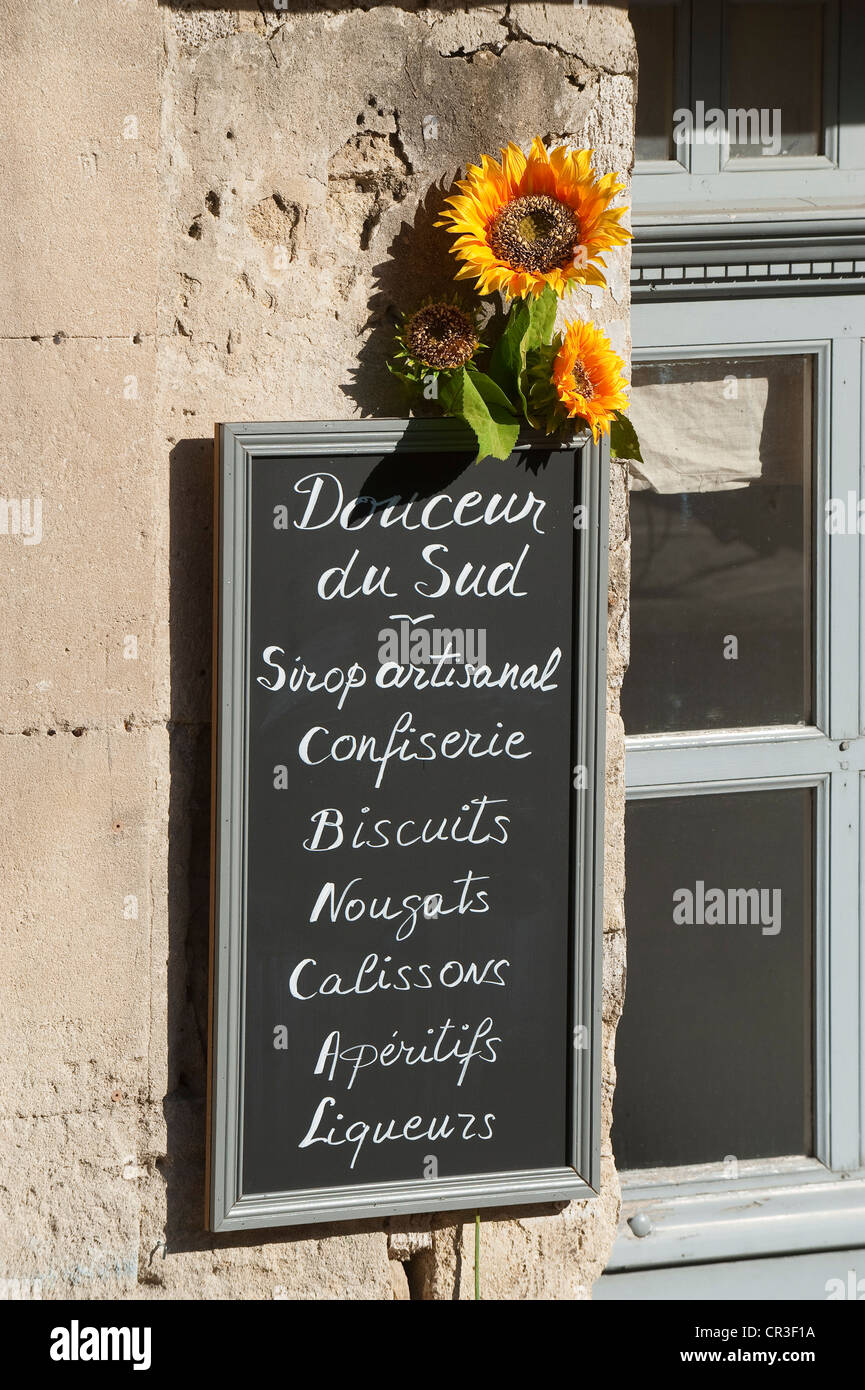 Douceur
du Sud
~
Sirop artisanal
Confiserie
Biscuits
Nougats
Calissons
Apéritifs
Liqueurs
alamy
Image ID: CR3F1A
www.alamy.com